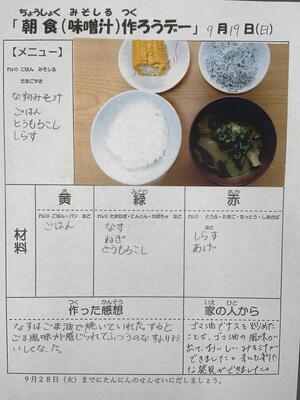 ちょうしょく みそしる つく
「朝食(味噌汁)作ろうデー」9月19日(日)
【メニュー】
れい) ごはん みそしる
たまごやき
なすのみそ汁
ごはん
とうもろこし
しらす
き みどり あか
黄 緑 赤
れい) ごはん・パン など
れい) たまねぎ・にんじん・かぼちゃ など
れい) とうふ・たまご・なっとう・しおさば
など
材料
ごはん
なす
ねぎ
とうもろこし
しらす
あげ
つく かんそう
作った感想
いえ ひと
家の人から
なすはごま油で焼いていれた。すると
ごま風味が感じられてふつうのなすよりお
いしくなった。
ゴマ油でナスを炒めた
ことで、ゴマ油の風味が
出て、おいしいみそ汁が
できました。私も新た
な発見ができました。
9月28日(火)までにたんにんのせんせいにだしましょう。